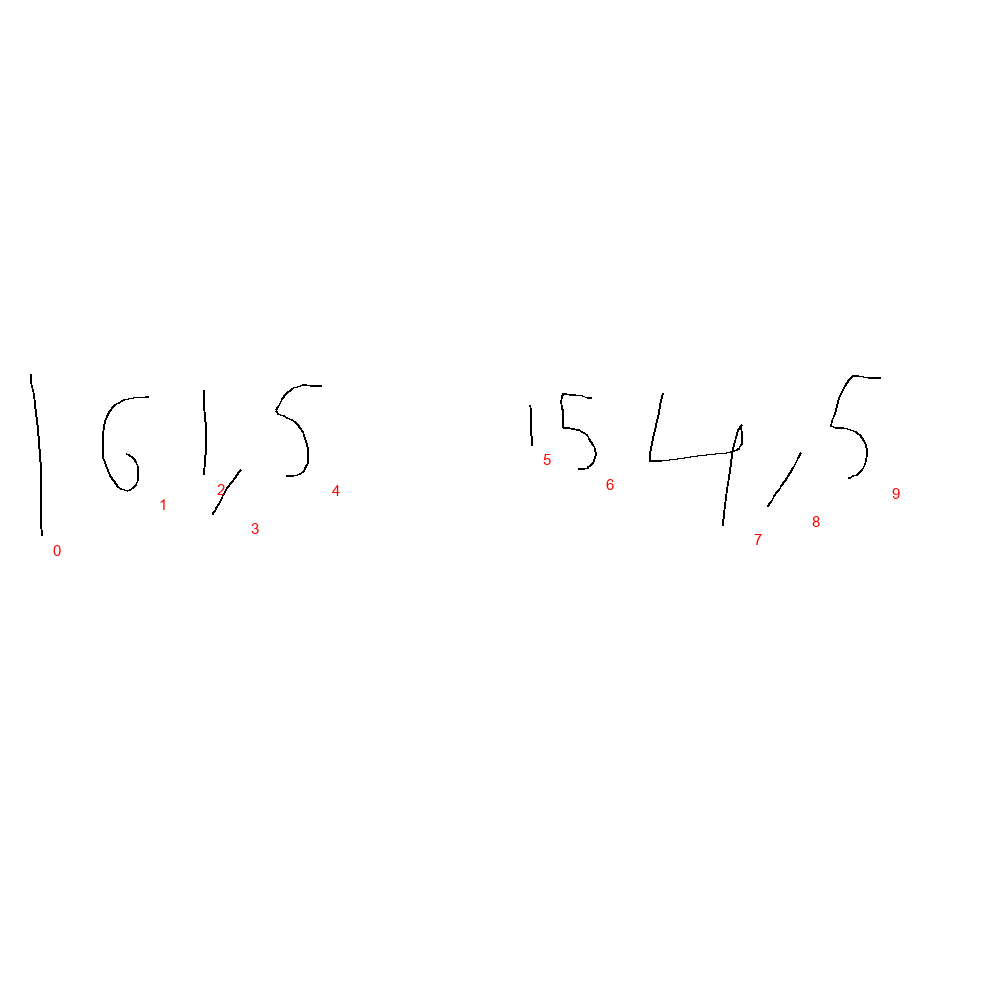 161,5 154,5
0 1 2 3 4 5 6 7 8 9